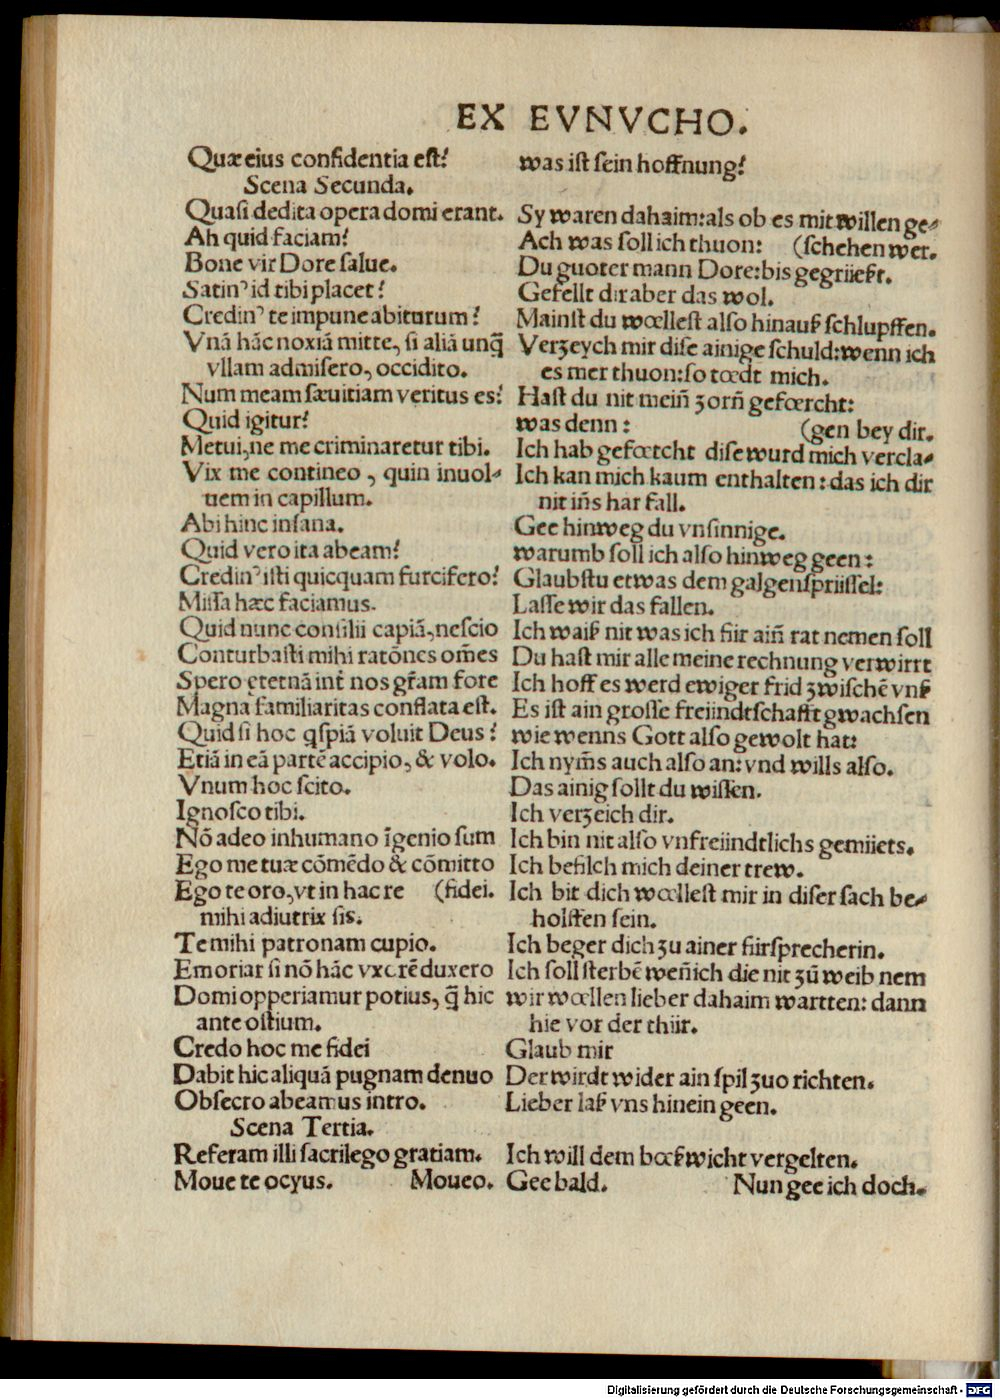 EX EVNVCHO.
Quæ eius confidentia est?
Scena Secunda.
Quasi dedita opera domi erant.
Ah quid faciam?
Bone vir Dore salue.
Satin' id tibi placet?
Credin' te impune abiturum?
Vnã hãc noxiã mitte, si aliã unq̃
vllam admisero, occidito.
Num meam sæuitiam veritus es?
Quid igitur?
Metui, ne me criminaretur tibi.
Vix me contineo, quin inuol-
uem in capillum.
Abi hinc insana.
Quid vero ita abeam?
Credin' isti quicquam furcifero?
Missa hæc faciamus.
Quid nunc consilii capiã, nescio
Conturbasti mihi ratõnes om̃es
Spero ęternã int̃ nos gr̃am fore
Magna familiaritas conflata est.
Quid si hoc qspiã voluit Deus?
Etiã in eã partẽ accipio, & volo.
Vnum hoc scito.
Ignosco tibi.
Nõ adeo inhumano ĩgenio sum
Ego me tuæ cõmẽdo & cõmitto
Ego te oro, vt in hac re (fidei.
mihi adiutrix sis.
Te mihi patronam cupio.
Emoriar si nõ hãc vxorẽ duxero
Domi opperiamur potius, q̃ hic
ante ostium.
Credo hoc me fidei
Dabit hic aliquã pugnam denuo
Obsecro abeamus intro.
Scena Tertia.
Referam illi sacrilego gratiam.
Moue te ocyus. Moueo.
was ist sein hoffnung?
Sy waren dahaim: als ob es mit willen ge-
Ach was soll ich thuon: (schehen wer.
Du guoter mann Dore: bis gegrüeßt.
Gefellt dir aber das wol.
Mainst du wœllest also hinauß schlupffen.
Verzeych mir dise ainige schuld: wenn ich
es mer thuon: so tœdt mich.
Hast du nit mein̄ zorn̄ gefœrcht:
was denn: (gen bey dir.
Ich hab gefœrcht dise wurd mich vercla-
Ich kan mich kaum enthalten: das ich dir
nit in̄s har fall.
Gee hinweg du vnsinnige.
warumb soll ich also hinweg geen:
Glaubstu etwas dem galgensprüssel:
Lasse wir das fallen.
Ich waiß nit was ich für ain̄ rat nemen soll
Du hast mir alle meine rechnung verwirrt
Ich hoff es werd ewiger frid zwischē vnß
Es ist ain grosse freündtschafft gwachsen
wie wenns Gott also gewolt hat:
Ich nym̄s auch also an: vnd wills also.
Das ainig sollt du wissen.
Ich verzeich dir.
Ich bin nit also vnfreündtlichs gemüets.
Ich befilch mich deiner trew.
Ich bit dich wœllest mir in diser sach be-
holffen sein.
Ich beger dich zu ainer fürsprecherin.
Ich soll sterbē wen̄ ich die nit zū weib nem
wir wœllen lieber dahaim wartten: dann
hie vor der thür.
Glaub mir
Der wirdt wider ain spil zuo richten.
Lieber laß vns hinein geen.
Ich will dem bœßwicht vergelten.
Gee bald. Nun gee ich doch.
Digitalisierung gefördert durch die Deutsche Forschungsgemeinschaft - DFG